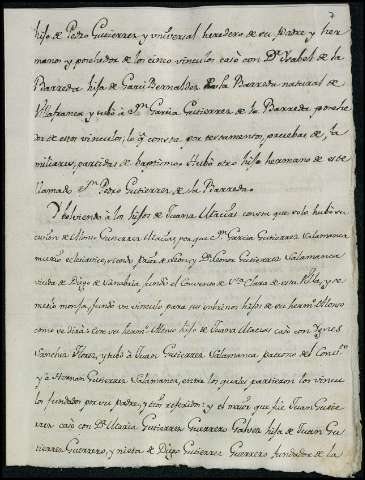 hijo de Pedro Gutierrez y universal heredero de su Padre y her
mano y poseheedor de los cinco vinculos casò con Dª Ysabel de la
Barreda hija de Garci Bernaldez de la Barreda natural de
Villafranca y tubò à Dⁿ Garcia Gutierrez de la Barreda poseehe
dor de estos vinculos, lo q̃ consta por testamentos, pruebas de, la
milicias, partidas de baptismo Hubo otro hijo hermano de este
llamado Dⁿ Pedro Gutierrez de la Barreda.
Y bolviendo à los hijos de Juana Macias consta que solo hubo su
cesion de Alonso Gutierrez Macias, por que Dⁿ Garcia Gutierrez Salamanca
murio eclesiastico, siendo Prior de Leon, y Dª Leonor Gutierrez Salamanca
viuda de Diego de Sanabria, fundó el Convento de Sta Clara de esta Villa, y se
metio monja, fundó un vinculo para sus sobrinos hijos de su herm.º Alonso
como se dirà: Este su herm.º Alonso hijo de Juana Macias casò con Ygnes
Sanchez Florez, y tubò à Juan Gutierrez Salamanca, patrono del Conv.to
y à Hernan Gutierrez Salamanca, entre los quales partieron los vincu
los fundados por su padre, y tios referidos: y el mayor que fue Juan Gutie
rrez casò con Dª Maria Gutierrez Guerrero Galvez hija de Juan Gu
tierrez Guerrero, y nieta de Diego Gutierrez Guerrero fundador de la